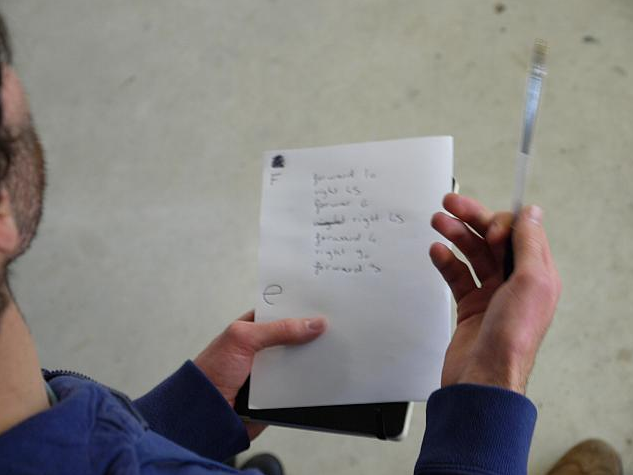 forward 10
right 45
forwar 6
right right 45
forward 6
right 90
forward 5
e